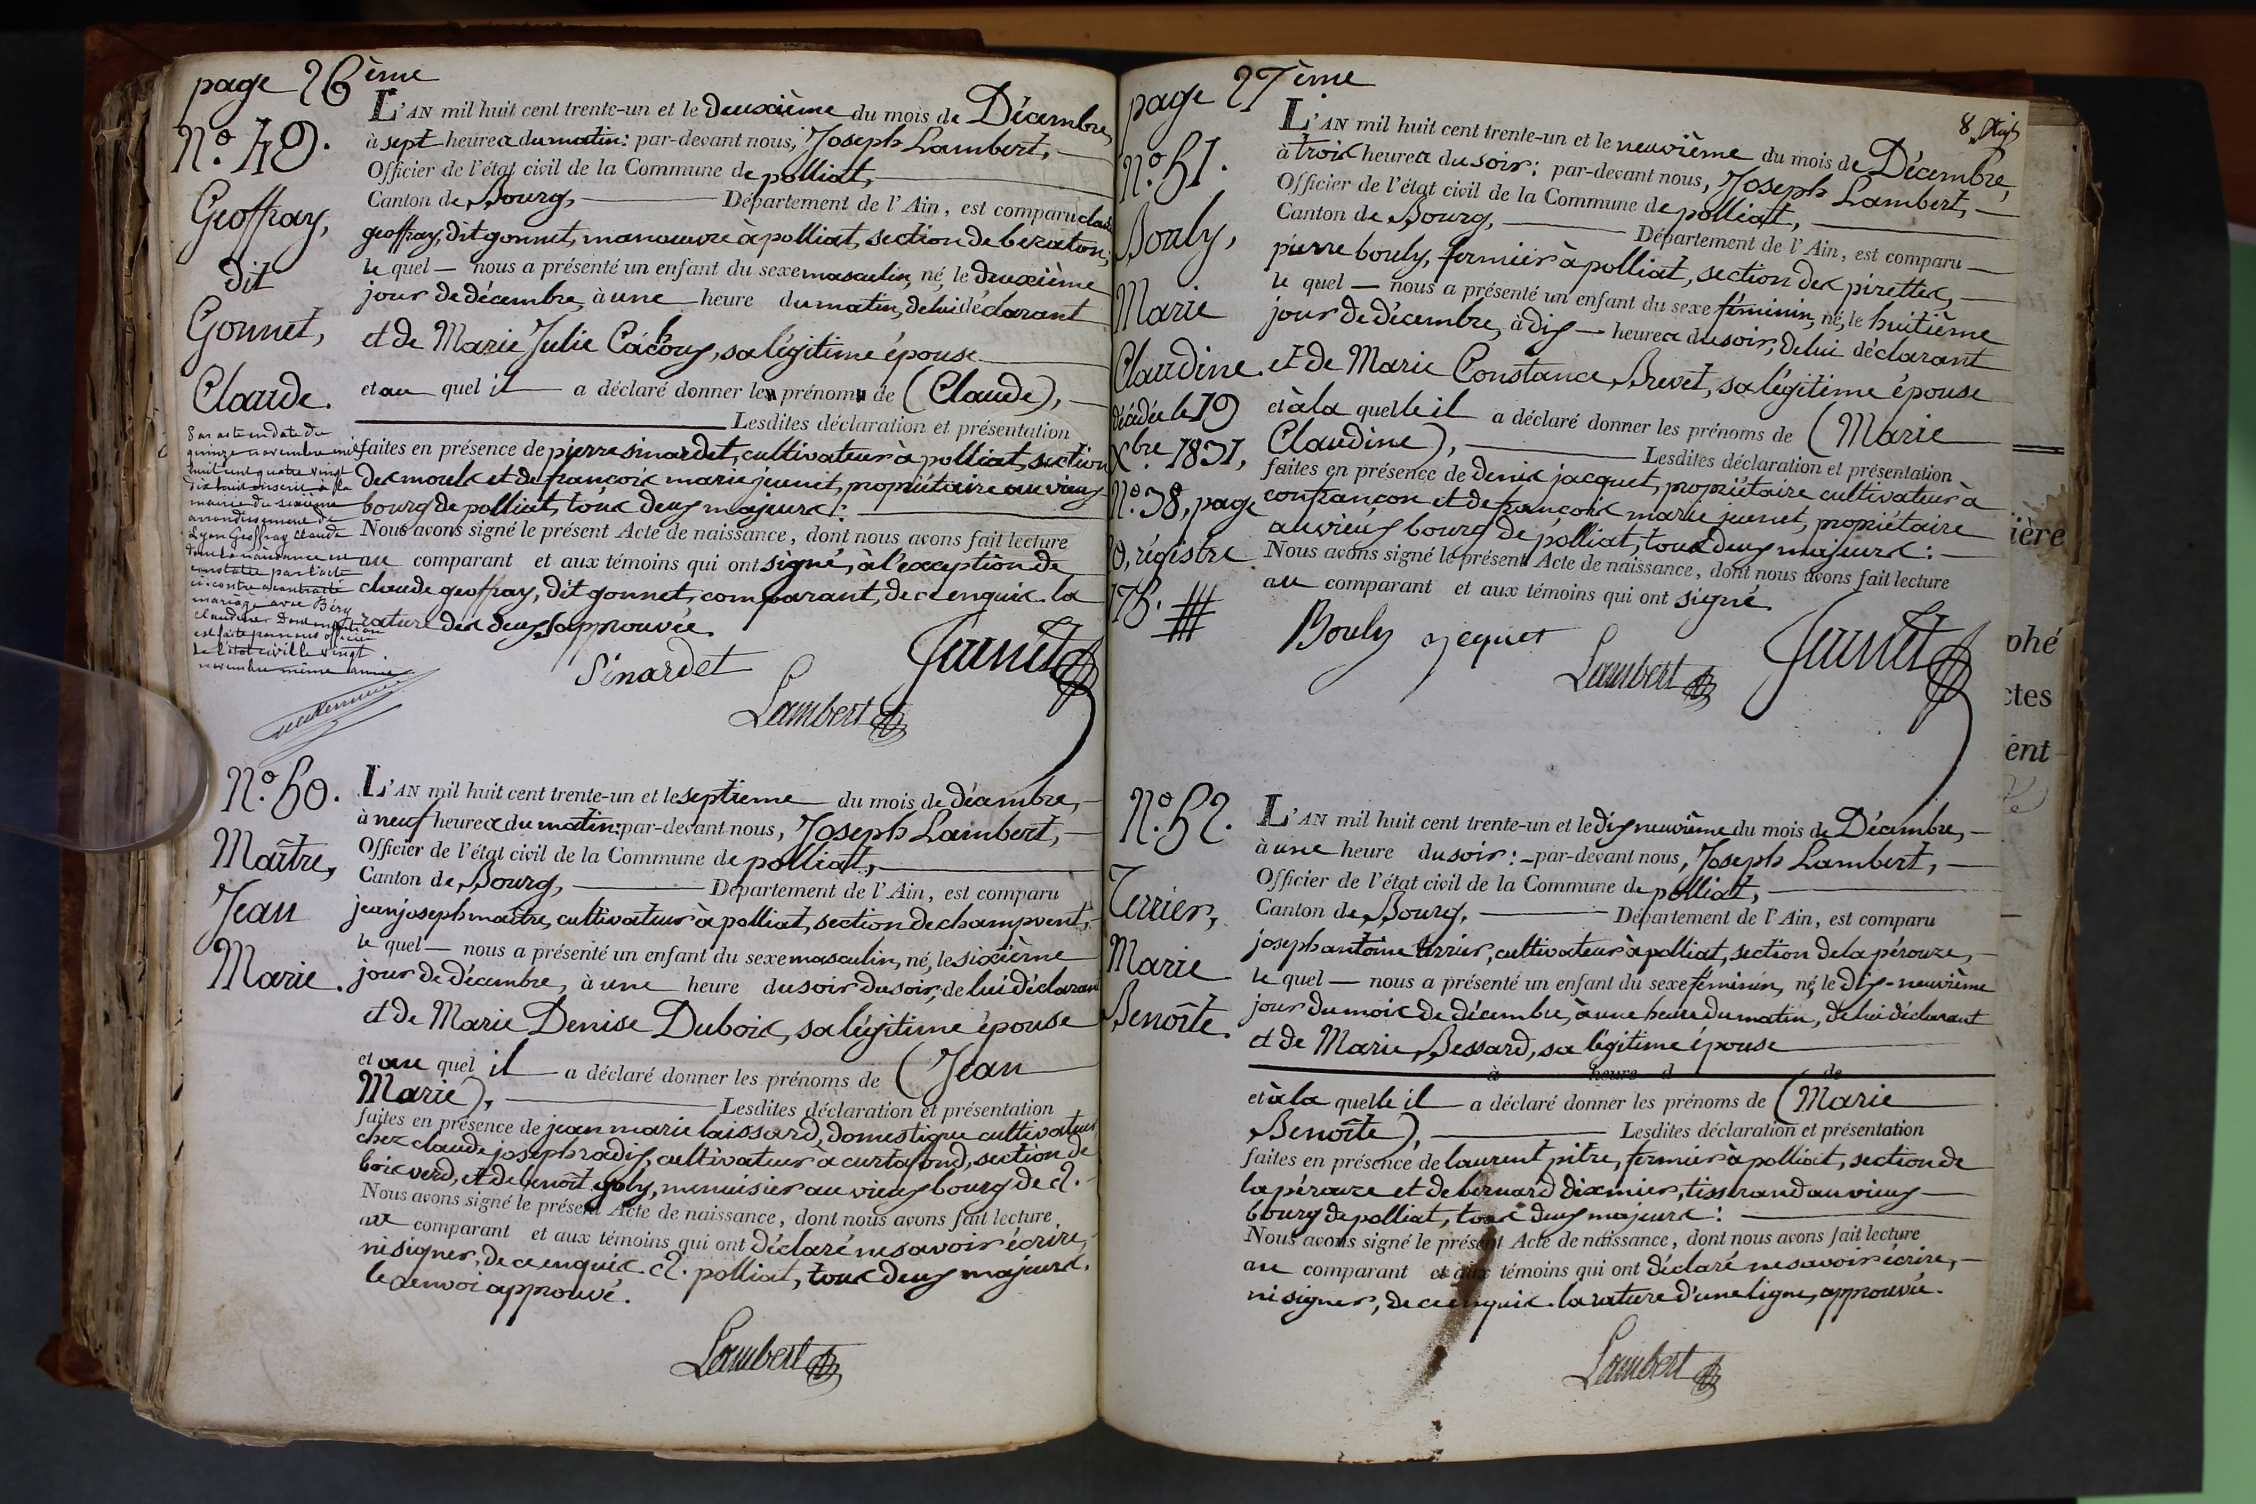 page 26ème
N.º 49.
Geoffray,
dit
Gonnet,
Claude.
L'AN mil huit cent trente-un et le deuxième du mois de Décembre,
à sept heures du matin: par-devant nous, Joseph Lambert,
Officier de l'état civil de la Commune de polliat,
Canton de Bourg, Département de l'Ain, est comparu claude
geoffray, dit gonnet, manœuvre à polliat, section de
le quel nous a présenté un enfant du sexe masculin, né, le deuxième
jour de décembre, à une heure du matin, de lui déclarant
et de Marie Julie, sa légitime épouse
et au quel il a déclaré donner les prénoms de (Claude),
Lesdites déclaration et présentation
faites en présence de pierre sinardet, cultivateur à polliat, section
des mouls et de françois marie jeunet, propriétaire au vieux
bourg de polliat, tous deux majeurs:
Nous avons signé le présent Acte de naissance, dont nous avons fait lecture
au comparant et aux témoins qui ont signé, à l'exception de
claude geoffray, dit gonnet, comparant, de ce enquis. la
rature des deux s approuvée.
Par acte en date du
quinze novembre mil
huit cent quatre vingt
dix huit inscrit à la
mairie du sixième
arrondissement de
Lyon Geoffray Claude
dont la naissance est
constatée par l'acte
ci-contre a contracté
mariage avec Béry
Claudine Dont mention
est faite par nous officier
de l'état civil le vingt
novembre même année
Sinardet
Jeunet
Lambert
N.º 50.
Maître,
Jean
Marie.
L'AN mil huit cent trente-un et le septieme du mois de décembre,
à neuf heures du matin: par-devant nous, Joseph Lambert,
Officier de l'état civil de la Commune de polliat,
Canton de Bourg, Département de l'Ain, est comparu
jean joseph maître, cultivateur à polliat, section de champvent,
le quel nous a présenté un enfant du sexe masculin, né, le sixième
jour de décembre, à une heure du soir du soir, de lui déclarant
et de Marie Denise Dubois, sa légitime épouse
et au quel il a déclaré donner les prénoms de (Jean
Marie), Lesdites déclaration et présentation
faites en présence de jean marie laissard, domestique cultivateur
chez claude joseph radix, cultivateur à curtafond, section de
bois verd, et de benoît goly, menuisier au vieux bourg de d.
Nous avons signé le présent Acte de naissance, dont nous avons fait lecture
au comparant et aux témoins qui ont déclaré ne savoir écrire,
ni signer, de ce enquis. d. polliat, tous deux majeurs.
le renvoi approuvé.
Lambert
page 27ème
N.º 51.
Bouly,
Marie
Claudine.
décédée le 19
Xbre 1831,
N.º 38, page
registre
L'AN mil huit cent trente-un et le neuvième du mois de Décembre,
à trois heures du soir: par-devant nous, Joseph Lambert,
Officier de l'état civil de la Commune de polliat,
Canton de Bourg, Département de l'Ain, est comparu
pierre bouly, fermier à polliat, section des pirettes,
le quel nous a présenté un enfant du sexe féminin, né, le huitième
jour de décembre, à dix heures du soir, de lui déclarant
et de Marie Constance Brevet, sa légitime épouse
et à la quelle il a déclaré donner les prénoms de (Marie
Claudine), Lesdites déclaration et présentation
faites en présence de denis jacquet, propriétaire cultivateur à
confrançon et de françois marie jeunet, propriétaire
au vieux bourg de polliat, tous deux majeurs:
Nous avons signé le présent Acte de naissance, dont nous avons fait lecture
au comparant et aux témoins qui ont signé
Bouly
Lambert
Jeunet
N.º 52.
Terrier,
Marie
Benoîte.
L'AN mil huit cent trente-un et le dix neuvième du mois de Décembre,
à une heure du soir: par-devant nous, Joseph Lambert,
Officier de l'état civil de la Commune de polliat,
Canton de Bourg, Département de l'Ain, est comparu
joseph antoine terrier, cultivateur à polliat, section de la pérouze,
le quel nous a présenté un enfant du sexe féminin, né, le dix-neuvième
jour du mois de décembre, à une heure du matin, de lui déclarant
et de Marie Bessard, sa légitime épouse
à heure d de
et à la quelle il a déclaré donner les prénoms de (Marie
Benoîte), Lesdites déclaration et présentation
faites en présence de laurent pitre, fermier à polliat, section de
la pérouze et de bernard dixmier, tisserand au vieux
bourg de polliat, tous deux majeurs:
Nous avons signé le présent Acte de naissance, dont nous avons fait lecture
au comparant et aux témoins qui ont déclaré ne savoir écrire,
ni signer, de ce enquis. la rature d'une ligne, approuvée.
Lambert
ière
phé
ctes
ent